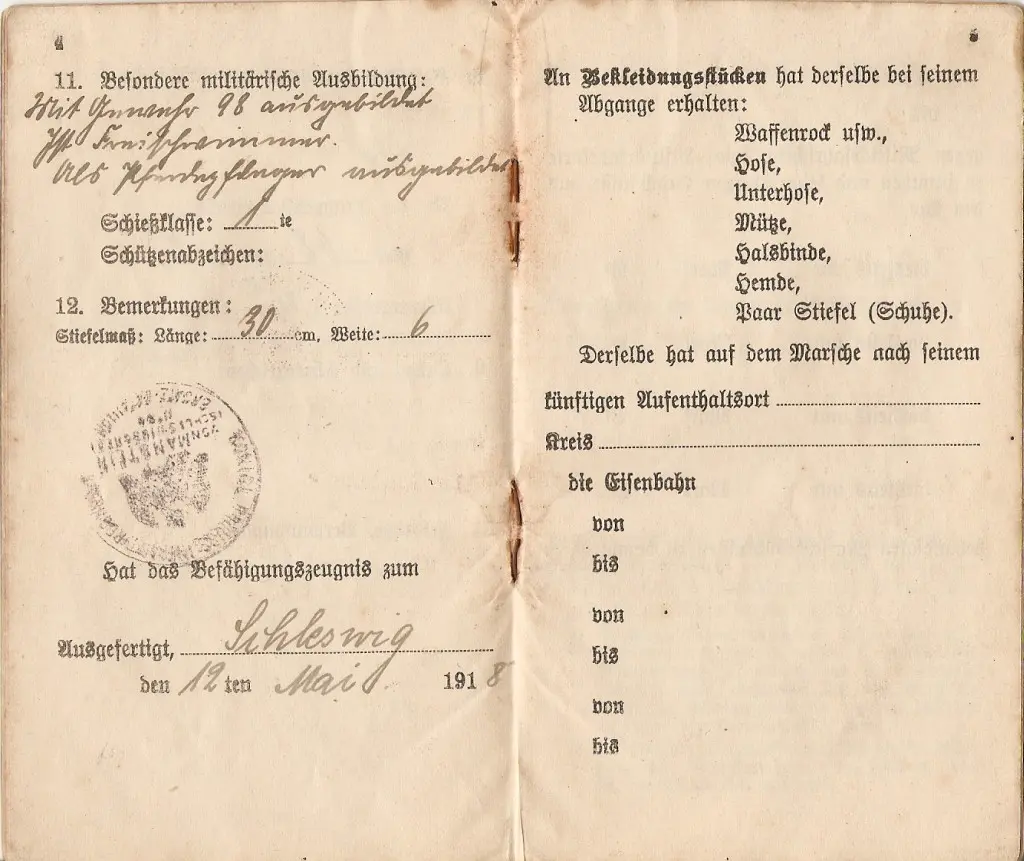 4
11. Besondere militärische Ausbildung:
Mit Gewehr 98 ausgebildet
Ist Freischwimmer.
Als Pferdepfleger ausgebildet
Schießklasse: 1 te
Schützenabzeichen:
12. Bemerkungen:
Stiefelmaß: Länge: 30 cm, Weite: 6
ERSATZ-BATAILLON
VON MANSTEIN
(SCHLESWIGSCHES)
N° 84
Hat das Befähigungszeugnis zum
Ausgefertigt, Schleswig
den 12ten Mai 1918
5
An Bekleidungsstücken hat derselbe bei seinem
Abgange erhalten:
Waffenrock usw.,
Hose,
Unterhose,
Mütze,
Halsbinde,
Hemde,
Paar Stiefel (Schuhe).
Derselbe hat auf dem Marsche nach seinem
künftigen Aufenthaltsort
Kreis
die Eisenbahn
von
bis
von
bis
von
bis